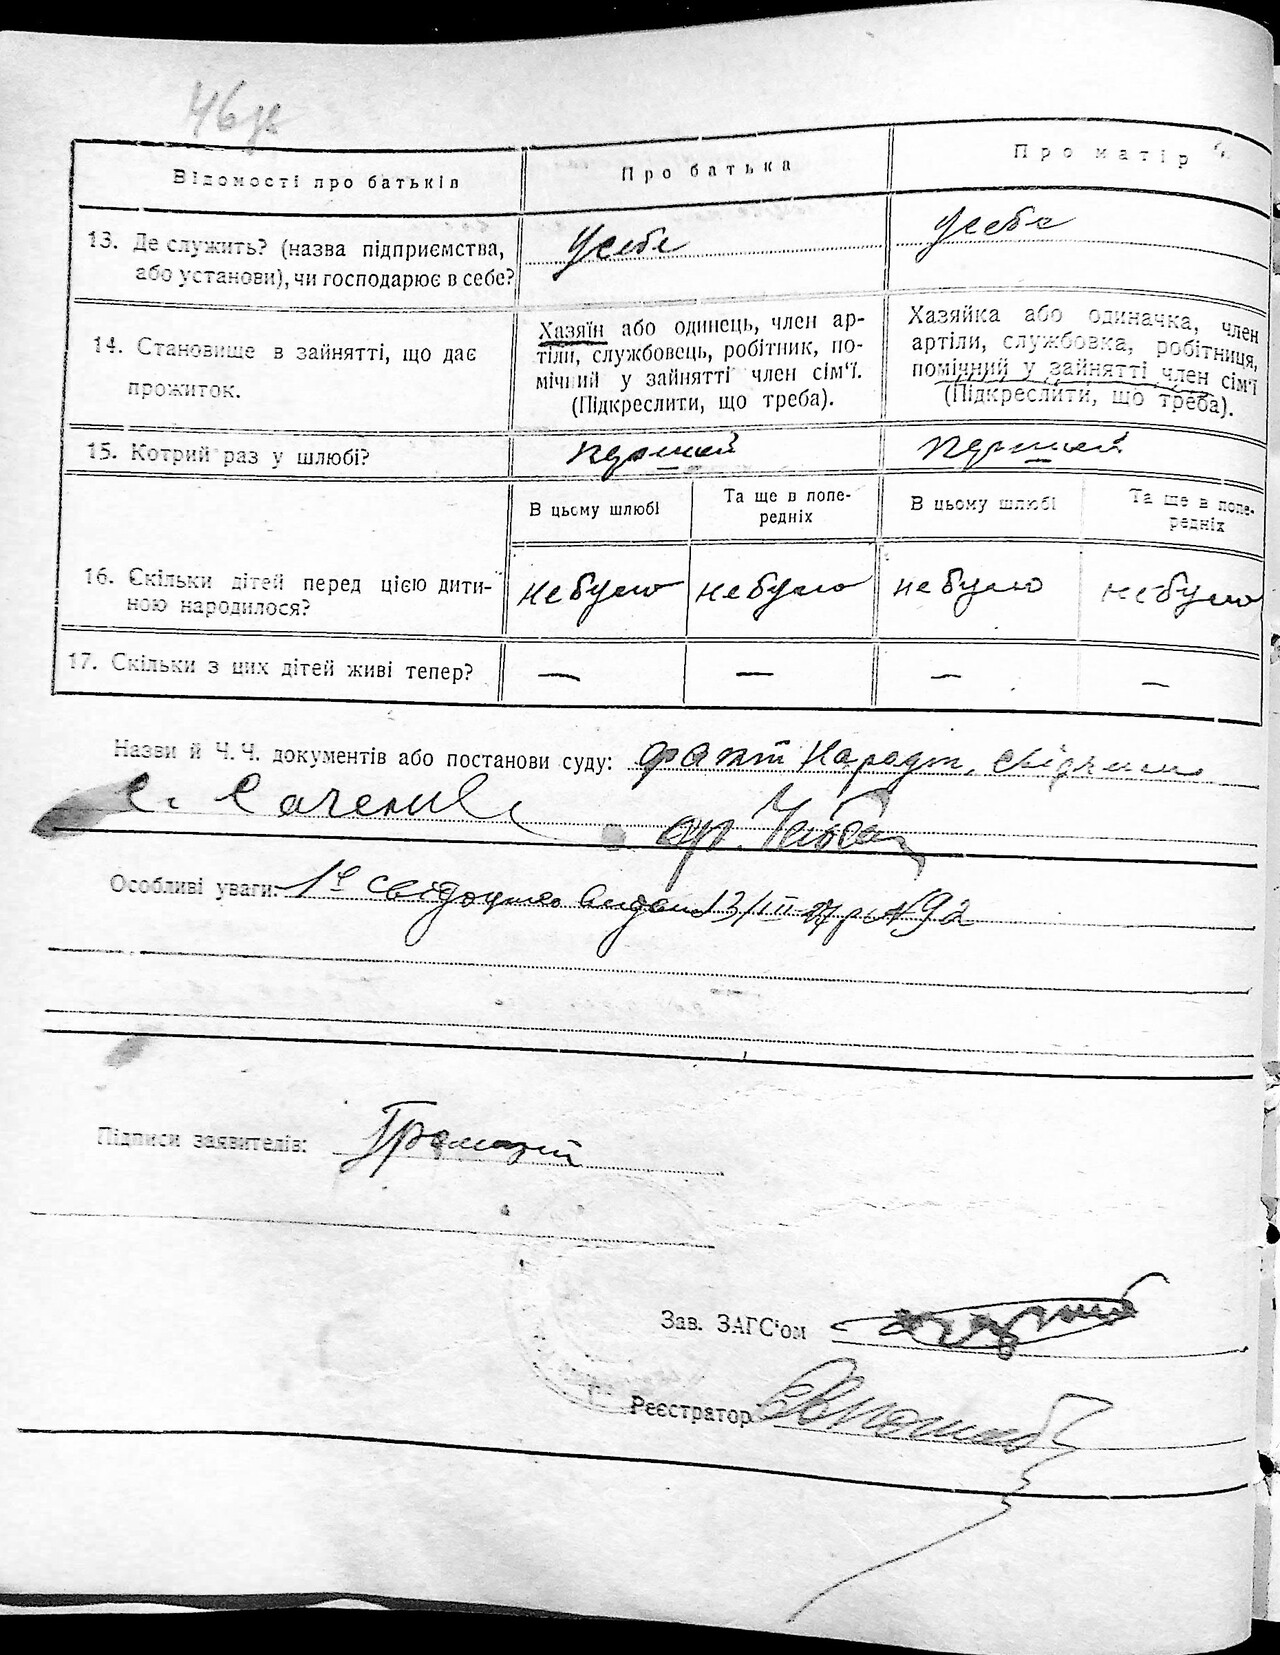 46
Відомості про батьків
Про батька
Про матір
13. Де служить? (назва підприємства,
або установи), чи господарює в себе?
У себе
У себе
14. Становище в зайнятті, що дає
прожиток.
Хазяїн або одинець, член ар-
тіли, службовець, робітник, по-
мічний у зайнятті член сім'ї.
(Підкреслити, що треба).
Хазяйка або одиначка, член
артіли, службовка, робітниця,
помічний у зайнятті член сім'ї
(Підкреслити, що треба).
15. Котрий раз у шлюбі?
перший
перший
В цьому шлюбі
Та ще в попе-
редніх
В цьому шлюбі
Та ще в попе-
редніх
16. Скільки дітей перед цією дити-
ною народилося?
не було
не було
не було
не було
17. Скільки з цих дітей живі тепер?
— — — —
Назви й Ч.Ч. документів або постанови суду: факт
гр.
Особливі уваги: 1е свідоцтво видано 13/III 27 р №92
Підписи заявителів:
Зав. ЗАГС'ом
Реєстратор